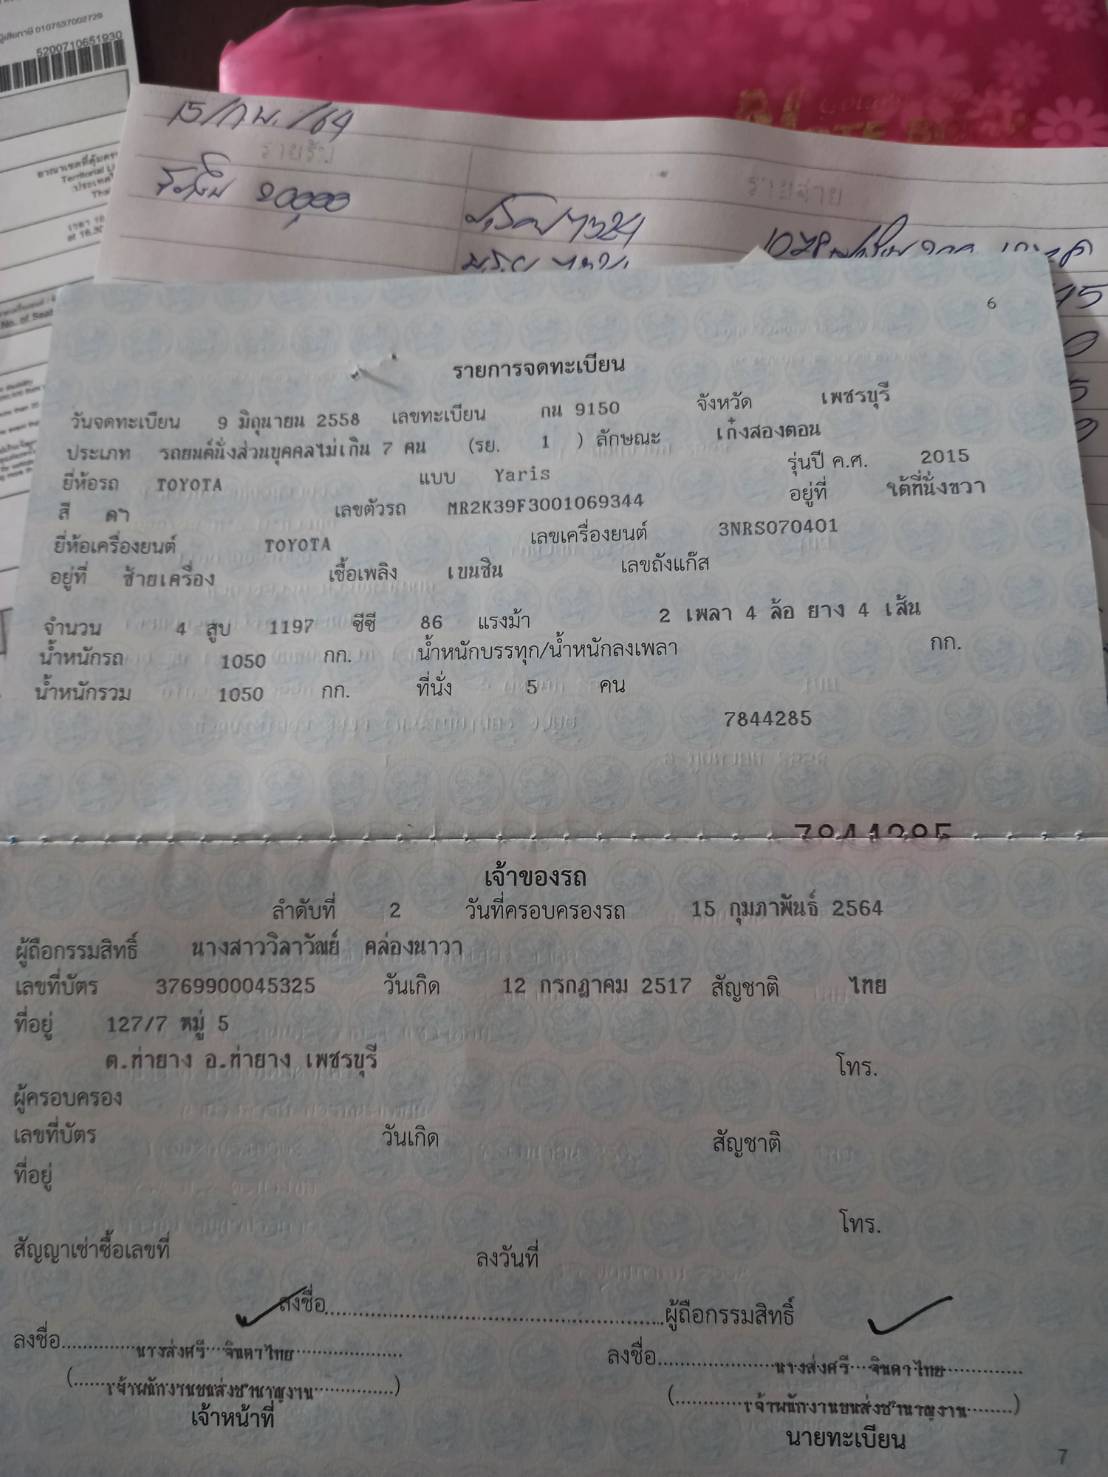 0107537002729
5200710651930
Territorial
15/ก.พ./64
รายรับ
รายจ่าย
6
รายการจดทะเบียน
วันจดทะเบียน 9 มิถุนายน 2558 เลขทะเบียน กน 9150 จังหวัด เพชรบุรี
ประเภท รถยนต์นั่งส่วนบุคคลไม่เกิน 7 คน (รย. 1 ) ลักษณะ เก๋งสองตอน
ยี่ห้อรถ TOYOTA แบบ Yaris รุ่นปี ค.ศ. 2015
สี ดำ เลขตัวรถ MR2K39F3001069344 อยู่ที่ ใต้ที่นั่งขวา
ยี่ห้อเครื่องยนต์ TOYOTA เลขเครื่องยนต์ 3NRS070401
อยู่ที่ ซ้ายเครื่อง เชื้อเพลิง เบนซิน เลขถังแก๊ส
จำนวน 4 สูบ 1197 ซีซี 86 แรงม้า 2 เพลา 4 ล้อ ยาง 4 เส้น
น้ำหนักรถ 1050 กก. น้ำหนักบรรทุก/น้ำหนักลงเพลา กก.
น้ำหนักรวม 1050 กก. ที่นั่ง 5 คน
7844285
7844285
เจ้าของรถ
ลำดับที่ 2 วันที่ครอบครองรถ 15 กุมภาพันธ์ 2564
ผู้ถือกรรมสิทธิ์ นางสาววิลาวัณย์ คล่องนาวา
เลขที่บัตร 3769900045325 วันเกิด 12 กรกฎาคม 2517 สัญชาติ ไทย
ที่อยู่ 127/7 หมู่ 5
ต.ท่ายาง อ.ท่ายาง เพชรบุรี โทร.
ผู้ครอบครอง
เลขที่บัตร วันเกิด สัญชาติ
ที่อยู่
โทร.
สัญญาเช่าซื้อเลขที่ ลงวันที่
ลงชื่อ ผู้ถือกรรมสิทธิ์
ลงชื่อ นางส่งศรี จินดาไทย ลงชื่อ นางส่งศรี จินดาไทย
(เจ้าพนักงานขนส่งชำนาญงาน) (เจ้าพนักงานขนส่งชำนาญงาน)
เจ้าหน้าที่ นายทะเบียน
7